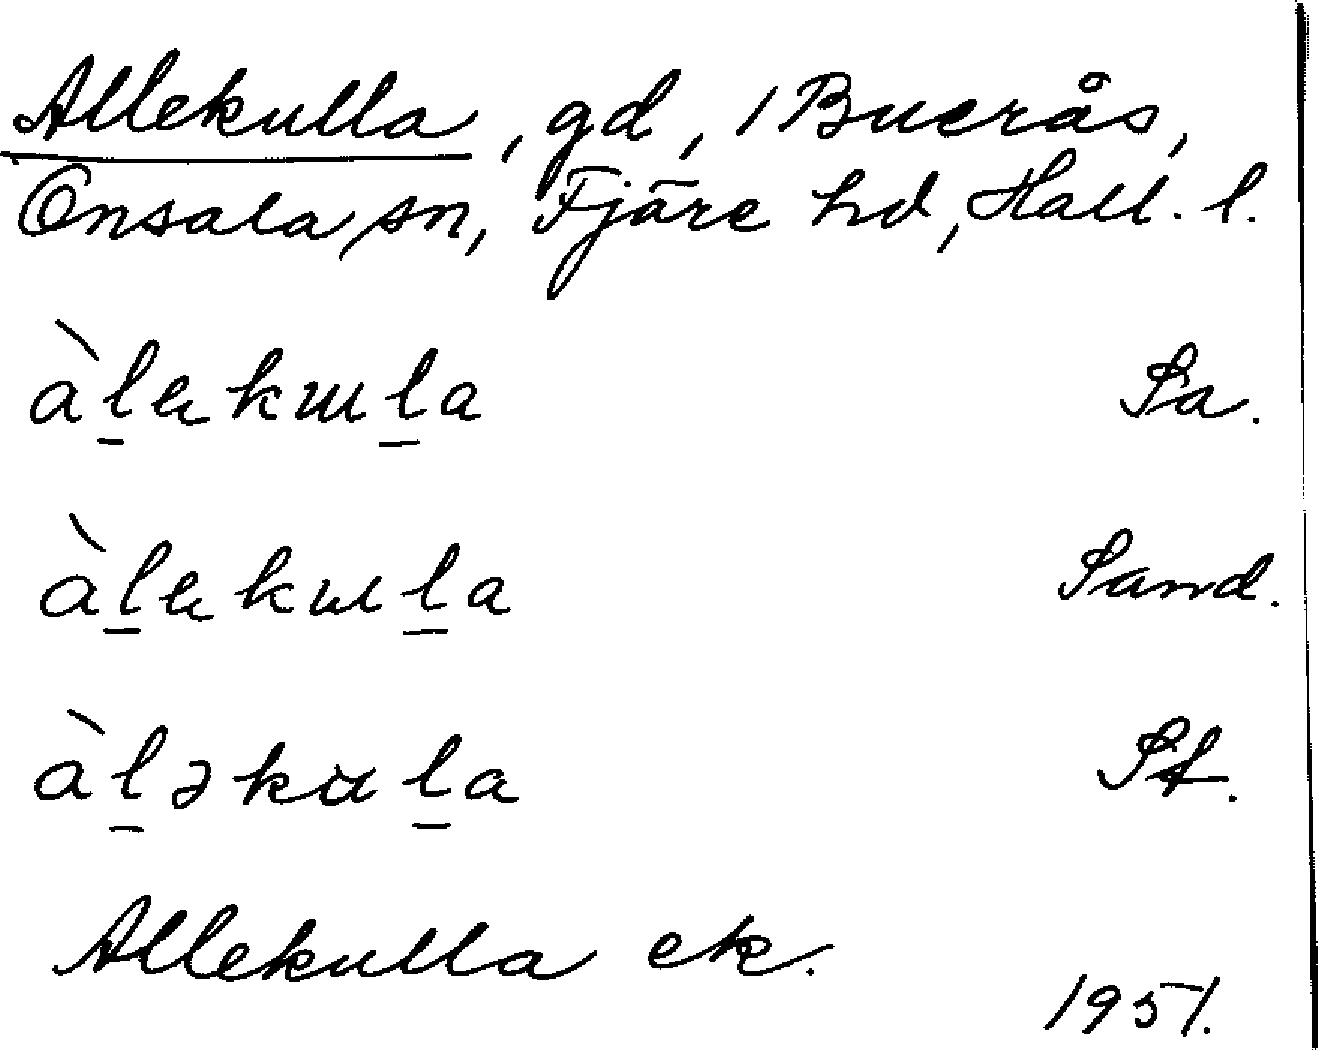 Allekulla, gd, 1 Buerås,
Onsala sn, Fjäre hd, Hall. l.
àl̠ekɯl̠a Sa.
àl̠ekɯl̠a Sand.
àl̠əkul̠a Sf.
Allekulla ek.
1951.